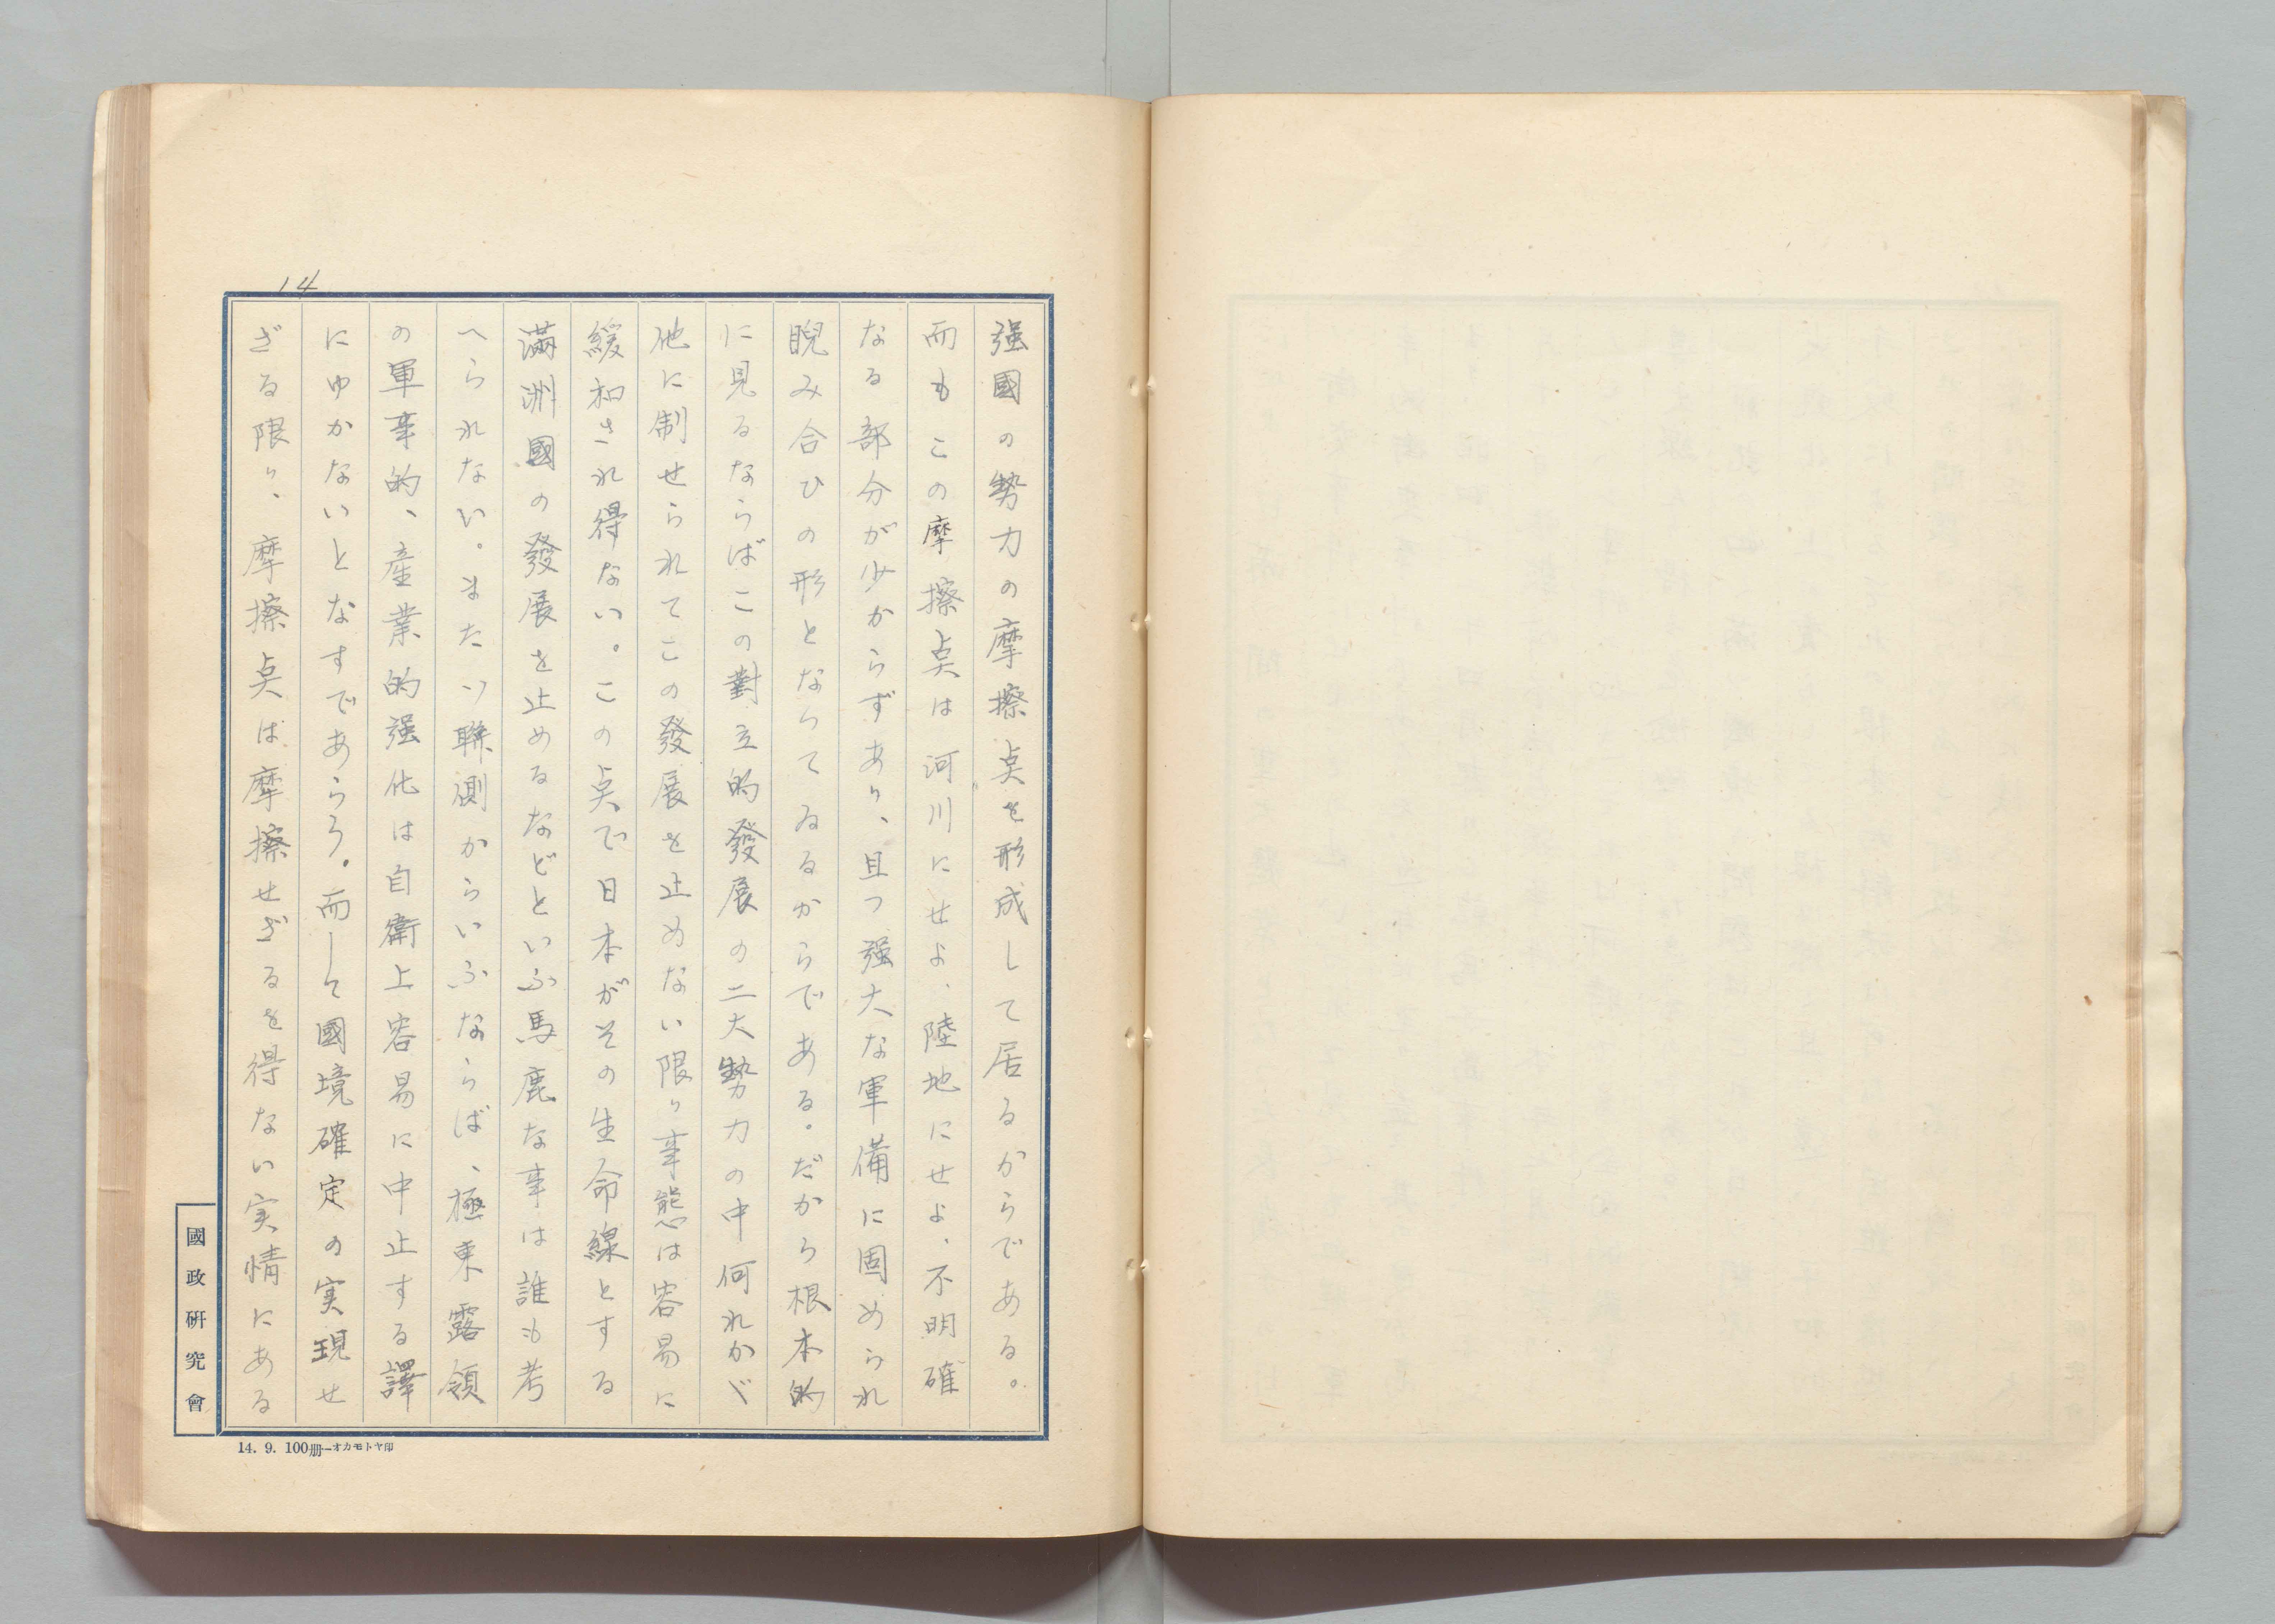 14
强國の勢力の摩擦点を形成して居るからである。
而もこの摩擦点は河川にせよ、陸地にせよ、不明確
なる部分が少からずあり、且つ强大な軍備に固められ
睨み合ひの形となつてゐるからである。だから根本的
に見るならばこの對立的發展の二大勢力の中何れかゞ
他に制せられてこの發展を止めない限り事態は容易に
緩和され得ない。この点で日本がその生命線とする
滿洲國の發展を止めるなどといふ馬鹿な事は誰も考
へられない。またソ聯側からいふならば、極東露領
の軍事的、産業的强化は自衛上容易に中止する譯
にゆかないとなすであらう。而して國境確定の実現せ
ざる限り、摩擦点は摩擦せざるを得ない実情にある
國政硏究會
14. 9. 100册―オカモトヤ印